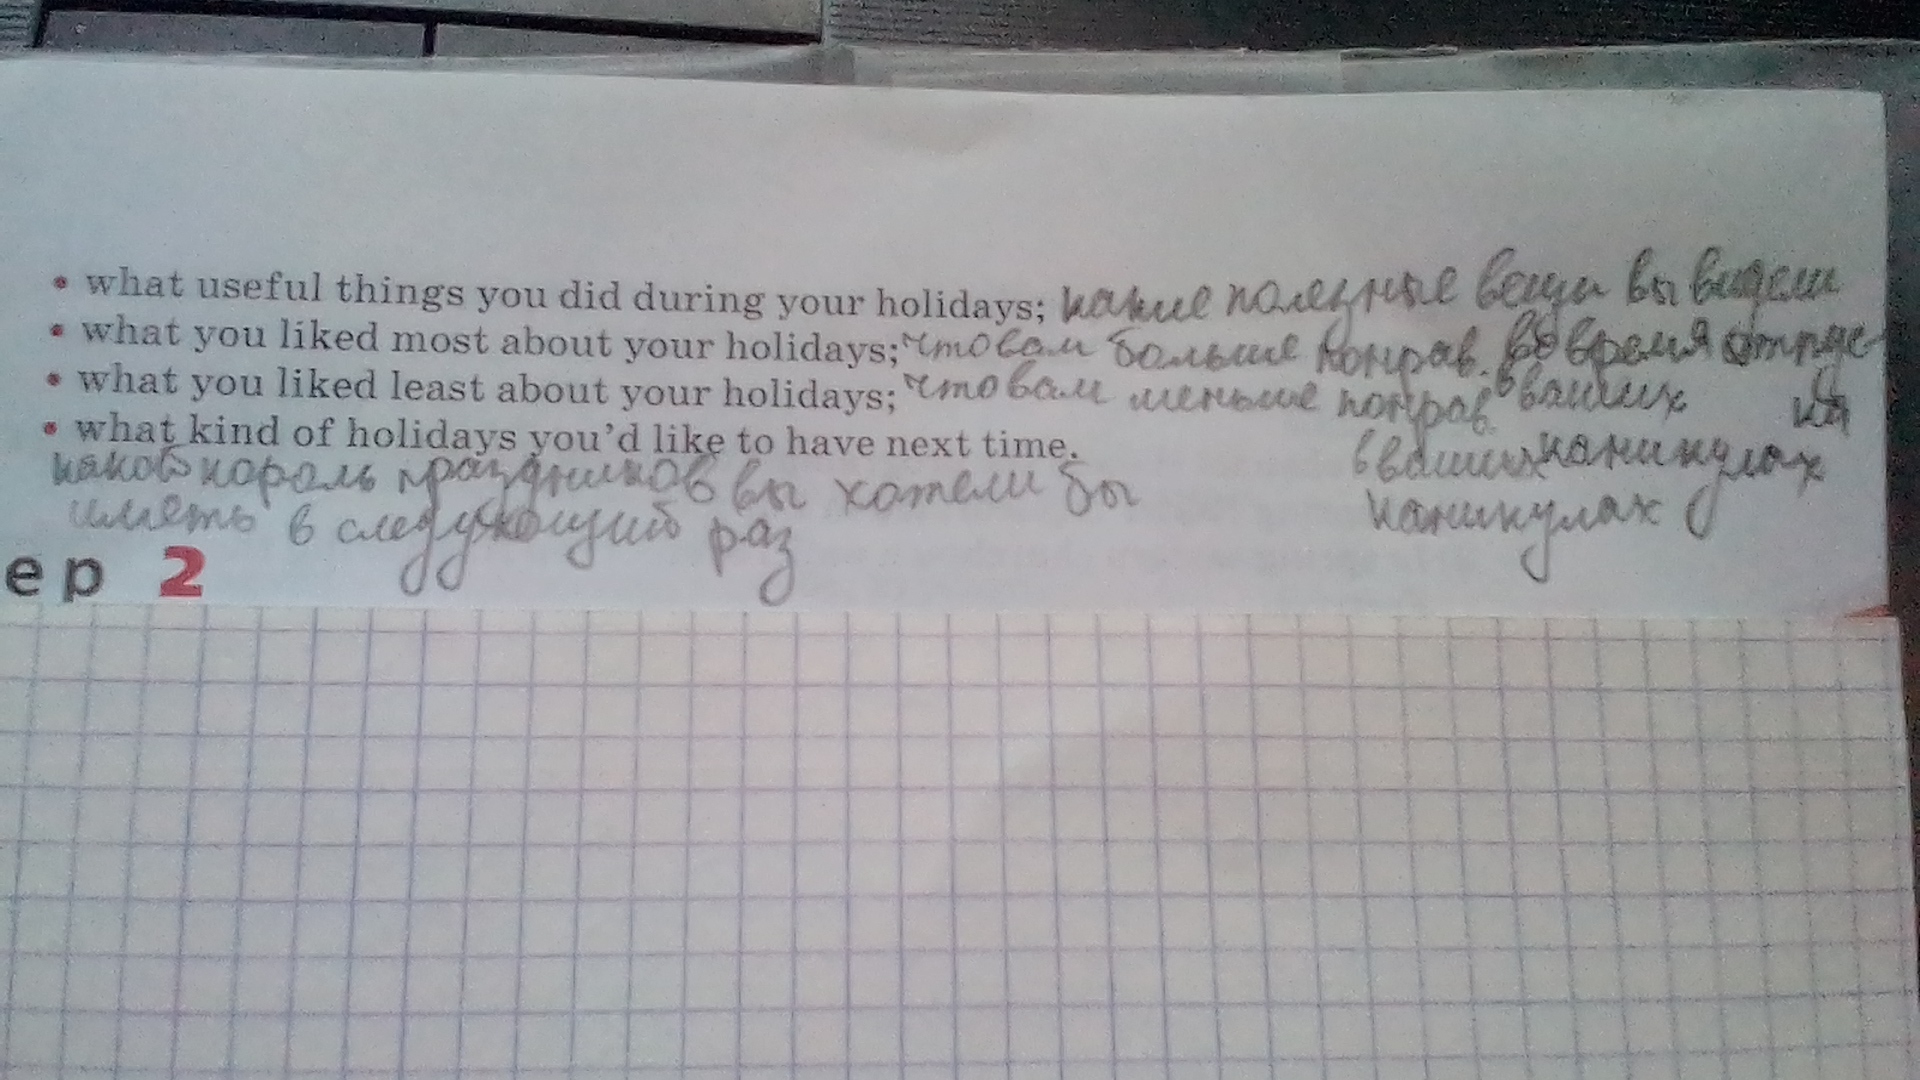 • what useful things you did during your holidays; какие полезные вещи вы видели
• what you liked most about your holidays; что вам больше понрав. во время отпус-
• what you liked least about your holidays; что вам меньше понрав. в ваших ка
• what kind of holidays you'd like to have next time. в ваших каникулах
каковокороль праздников вы хотели бы каникулах
иметь в следующий раз
ер 2